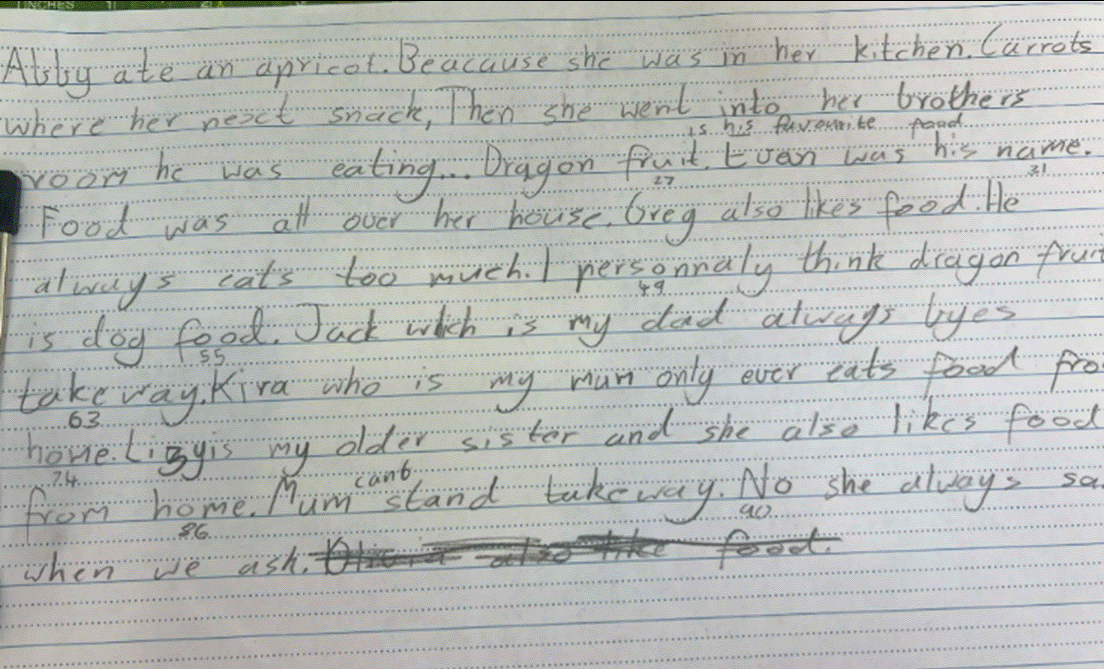 INCHES
Abby ate an apricot. Beacause she was in her kitchen. Carrots
where her nesct snack, Then she went into her brothers
is his favourite food
room he was eating... Dragon fruit. Evan was his name.
27 31
Food was all over her house. Greg also likes food. He
always eats too much. I personnaly think dragon fruit
49
is dog food. Jack which is my dad always byes
55
takeway. Kira who is my mum only ever eats food fro
63
home. Lizzy is my older sister and she also likes food
74 cant
from home. Mum stand takeway. No she always sa
86 90
when we ask. Olivia also like food.